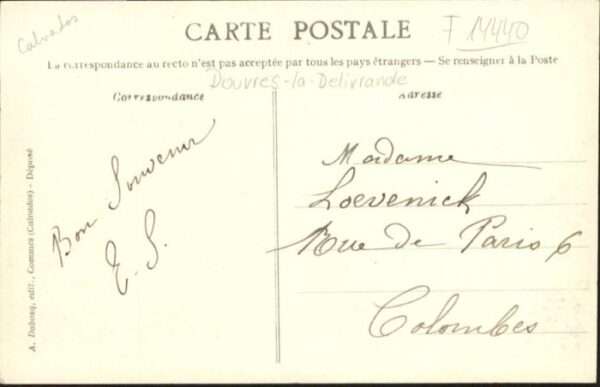 Calvados
CARTE POSTALE
F 14440
La correspondance au recto n'est pas acceptée par tous les pays étrangers — Se renseigner à la Poste
Douvres-la-Delivrande
Correspondance
Adresse
Bon Souvenir
E. S.
Madame
Loevenick
Rue de Paris 6
Colombes
A. Dubosq, édit., Commes (Calvados) – Déposé